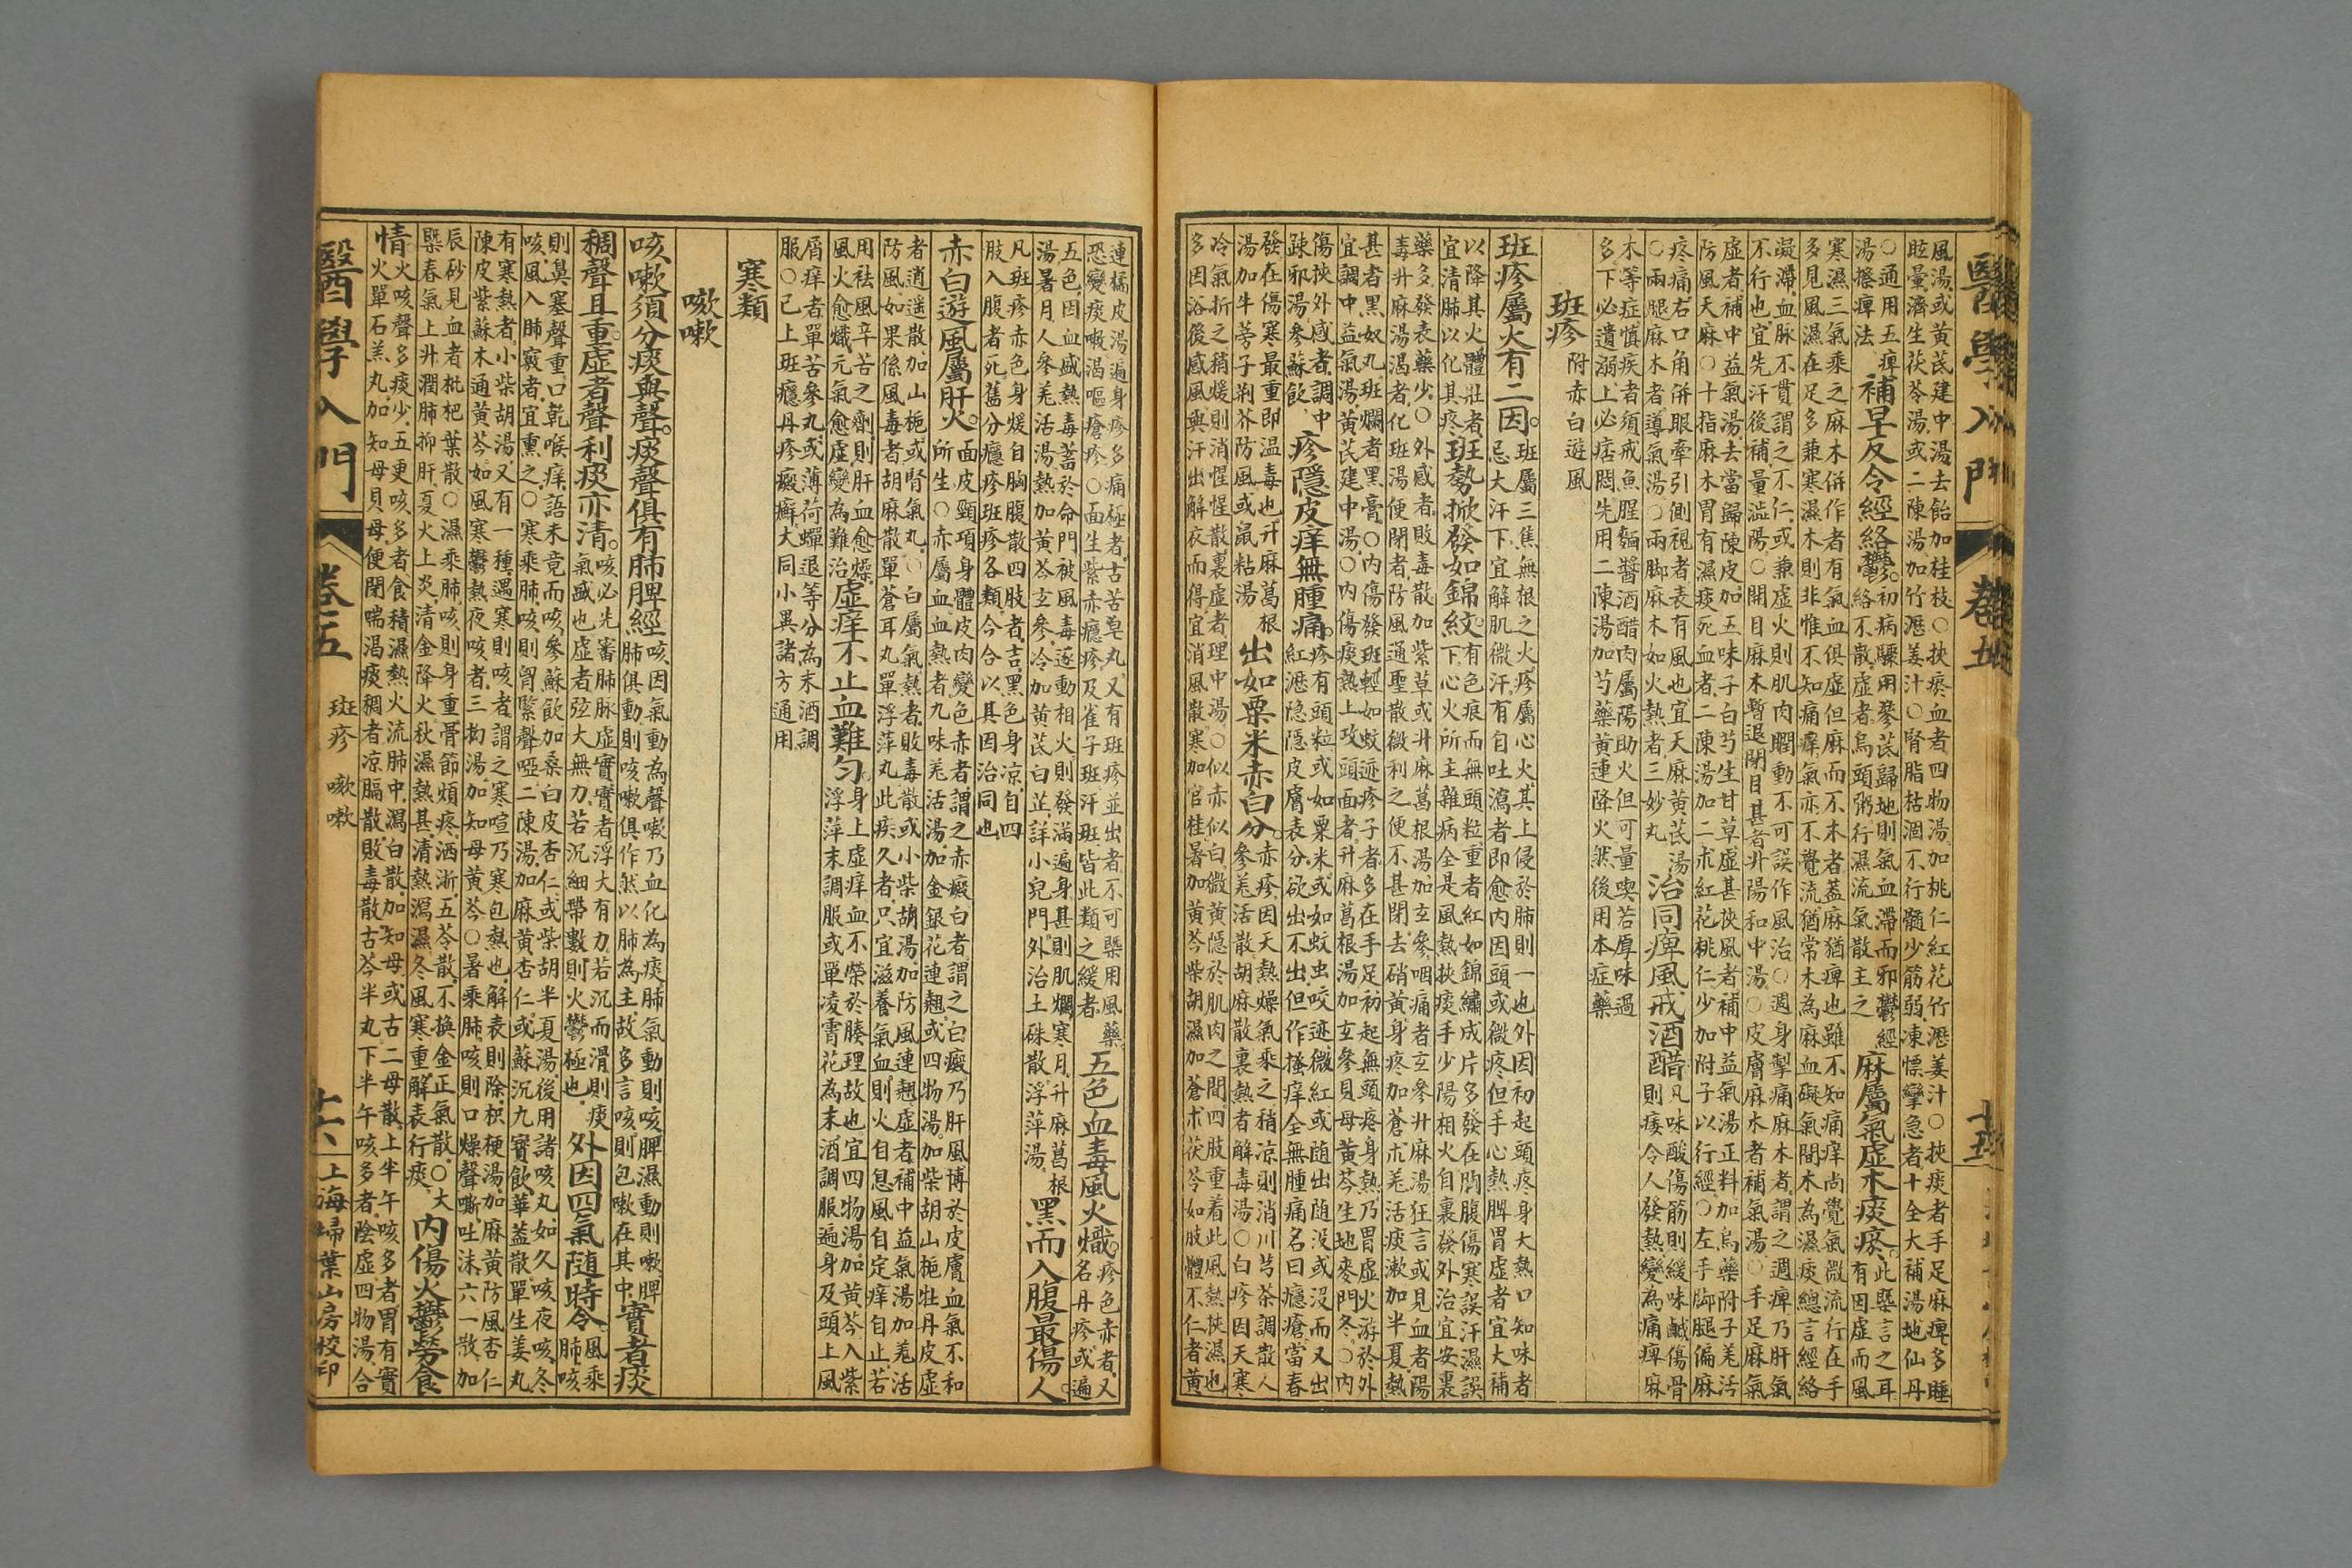 風湯或黃芪建中湯去飴加桂枝○挾瘀血者四物湯加桃仁紅花竹瀝姜汁○挾痰者手足麻痺多睡
眩暈濟生茯苓湯或二陳湯加竹瀝姜汁○腎脂枯涸不行髓少筋弱凍慄攣急者十全大補湯地仙丹
○通用五痺
湯擦痺法
補早反令經絡鬱
初病驟用蔘芪歸地則氣血滯而邪鬱經
絡不散虛者烏頭粥行濕流氣散主之
麻屬氣虛木痰瘀
此槩言之耳
有因虛而風
寒濕三氣乘之麻木併作者有氣血俱虛但麻而不木者蓋麻猶痺也雖不知痛痒尚覺氣微流行在手
多見風濕在足多兼寒濕木則非惟不知痛痒氣亦不覺流猶常木為麻血礙氣間木為濕痰總言經絡
凝滯血脉不貫謂之不仁或兼虛火則肌肉瞤動不可誤作風治○週身掣痛麻木者謂之週痺乃肝氣
不行也宜先汗後補量溢陽○開目麻木暫退閉目甚者升陽和中湯○皮膚麻木者補氣湯○手足麻氣
虛者補中益氣湯去當歸陳皮加五味子白芍生甘草虛甚挾風者補中益氣湯正料加烏藥附子羌活
防風天麻○十指麻木胃有濕痰死血者二陳湯加二朮紅花桃仁少加附子以行經○左手脚腿偏麻
疼痛右口角併眼牽引側視者表有風也宜天麻黃芪湯
○兩腿麻木者導氣湯○兩脚麻木如火熱者三妙丸
治同痺風戒酒醋
凡味酸傷筋則緩味鹹傷骨
則痿令人發熱變為痛痺麻
木等症慎疾者須戒魚腥麵醬酒醋肉屬陽助火但可量喫若厚味過
多下必遺溺上必痞悶先用二陳湯加芍藥黃連降火然後用本症藥
班疹 附赤白遊風
班疹屬火有二因
班屬三焦無根之火疹屬心火其上侵於肺則一也外因初起頭疼身大熱口知味者
忌大汗下宜解肌微汗有自吐瀉者即愈內因頭或微疼但手心熱脾胃虛者宜大補
以降其火體壯者
宜清肺以化其疼
班勢掀發如錦紋
有色痕而無頭粒重者紅如錦繡成片多發在胸腹傷寒誤汗濕誤
下心火所主雜病全是風熱挾痰手少陽相火自裏發外治宜安裏
藥多發表藥少○外感者敗毒散加紫草或升麻葛根湯加玄參咽痛者玄參升麻湯狂言或見血者陽
毒升麻湯渴者化班湯便閉者防風通聖散微利之便不甚閉去硝黃身疼加蒼朮羌活痰漱加半夏熱
甚者黑奴丸班爛者黑膏○內傷發班輕如蚊迹疹子者多在手足初起無頭疼身熱乃胃虛火游於外
宜調中益氣湯黃芪建中湯○內傷痰熱上攻頭面者升麻葛根湯加玄參貝母黃芩生地麥門冬○內
傷挾外感者調中
踈邪湯參蘇飲
疹隱皮痒無腫痛
疹有頭粒或如粟米或如蚊虫咬迹微紅或隨出隨没或没而又出
紅瀝隐隱皮膚表分欲出不出但作搔痒全無腫痛名曰癮瘡當春
發在傷寒最重即温毒也升麻葛根
湯加牛蒡子荆芥防風或鼠粘湯
出如粟米赤白分
赤疹因天熱燥氣乘之稍凉則消川芎茶調散人
參羌活散胡麻散裏熱者解毒湯○白疹因天寒
冷氣折之稍煖則消惺惺散裏虛者理中湯○似赤似白微黃隱於肌肉之間四肢重着此風熱挾濕也
多因浴後感風與汗出解衣而得宜消風散寒加官桂暑加黃芩柴胡濕加蒼朮茯苓如肢體不仁者黃
連橘皮湯遍身疹多痛極者古苦皂丸又有班疹並出者不可槩用風藥
恐變痰嗽渴嘔瘡疹○面生紫赤癮疹及雀子班汗班皆此類之緩者
五色血毒風火熾
疹色赤者又
名丹疹或遍
五色因血盛熱毒蓄於命門被風毒逐動相火則發滿遍身甚則肌爛寒月升麻葛根
湯暑月人參羌活湯熱加黃芩玄參冷加黃芪白芷詳小兒門外治土硃散浮萍湯
黑而入腹最傷人
凡班疹赤色身煖自胸腹散四肢者吉黑色身凉自四
肢入腹者死舊分癮疹班疹各類今合以其因治同也
赤白遊風屬肝火
面皮頸項身體皮肉變色赤者謂之赤癜白者謂之白癜乃肝風博於皮膚血氣不和
所生○赤屬血血熱者九味羌活湯加金銀花連翹或四物湯加柴胡山梔牡丹皮虛
者逍遙散加山梔或腎氣丸○白屬氣熱者敗毒散或小柴胡湯加防風連翹虛者補中益氣湯加羌活
防風如果係風毒者胡麻散單蒼耳丸單浮萍丸此疾久者只宜滋養氣血則火自息風自定痒自止若
用袪風辛苦之劑則肝血愈燥
風火愈熾元氣愈虛變為難治
虛痒不止血難勻
身上虛痒血不榮於腠理故也宜四物湯加黃芩入紫
浮萍末調服或單凌霄花為末酒調服遍身及頭上風
屑痒者單苦參丸或薄荷蟬退等分為末酒調
服○已上班癮丹疹癜癬大同小異諸方通用
寒類
嗽嗽
咳嗽須分痰與聲痰聲俱有肺脾經
咳因氣動為聲嗽乃血化為痰肺氣動則咳脾濕動則嗽脾
肺俱動則咳嗽俱作然以肺為主故多言咳則包嗽在其中
實者痰
稠聲且重虛者聲利痰亦清
咳必先審肺脉虛實實者浮大有力若沉而滑則痰
氣盛也虛者弦大無力若沉細帶數則火鬱極也
外因四氣隨時令
風乘
肺咳
則鼻塞聲重口乾喉痒語未竟而咳參蘇飲加桑白皮杏仁或柴胡半夏湯後用諸咳丸如久咳夜咳冬
咳風入肺竅者宜熏之○寒乘肺咳則胷緊聲啞二陳湯加麻黃杏仁或蘇沉九寶飲華蓋散單生姜丸
有寒熱者小柴胡湯又有一種遇寒則咳者謂之寒喧乃寒包熱也解表則除枳梗湯加麻黃防風杏仁
陳皮紫蘇木通黃芩如風寒鬱熱夜咳者三拗湯加知母黃芩○暑乘肺咳則口燥聲嘶吐沫六一散加
辰砂見血者枇杷葉散○濕乘肺咳則身重骨節煩疼洒淅五苓散不換金正氣散○大
槩春氣上升潤肺抑肝夏火上炎清金降火秋濕熱甚清熱瀉濕冬風寒重解表行痰
內傷火鬱勞食
情
火咳聲多痰少五更咳多者食積濕熱火流肺中瀉白散加知母或古二母散上半午咳多者胃有實
火單石羔丸加知母貝母便閉喘渴痰稠者凉膈散敗毒散古芩半丸下半午咳多者陰虛四物湯合
醫學入門 卷五 班疹 嗽嗽 十六 上海埽葉山房校印